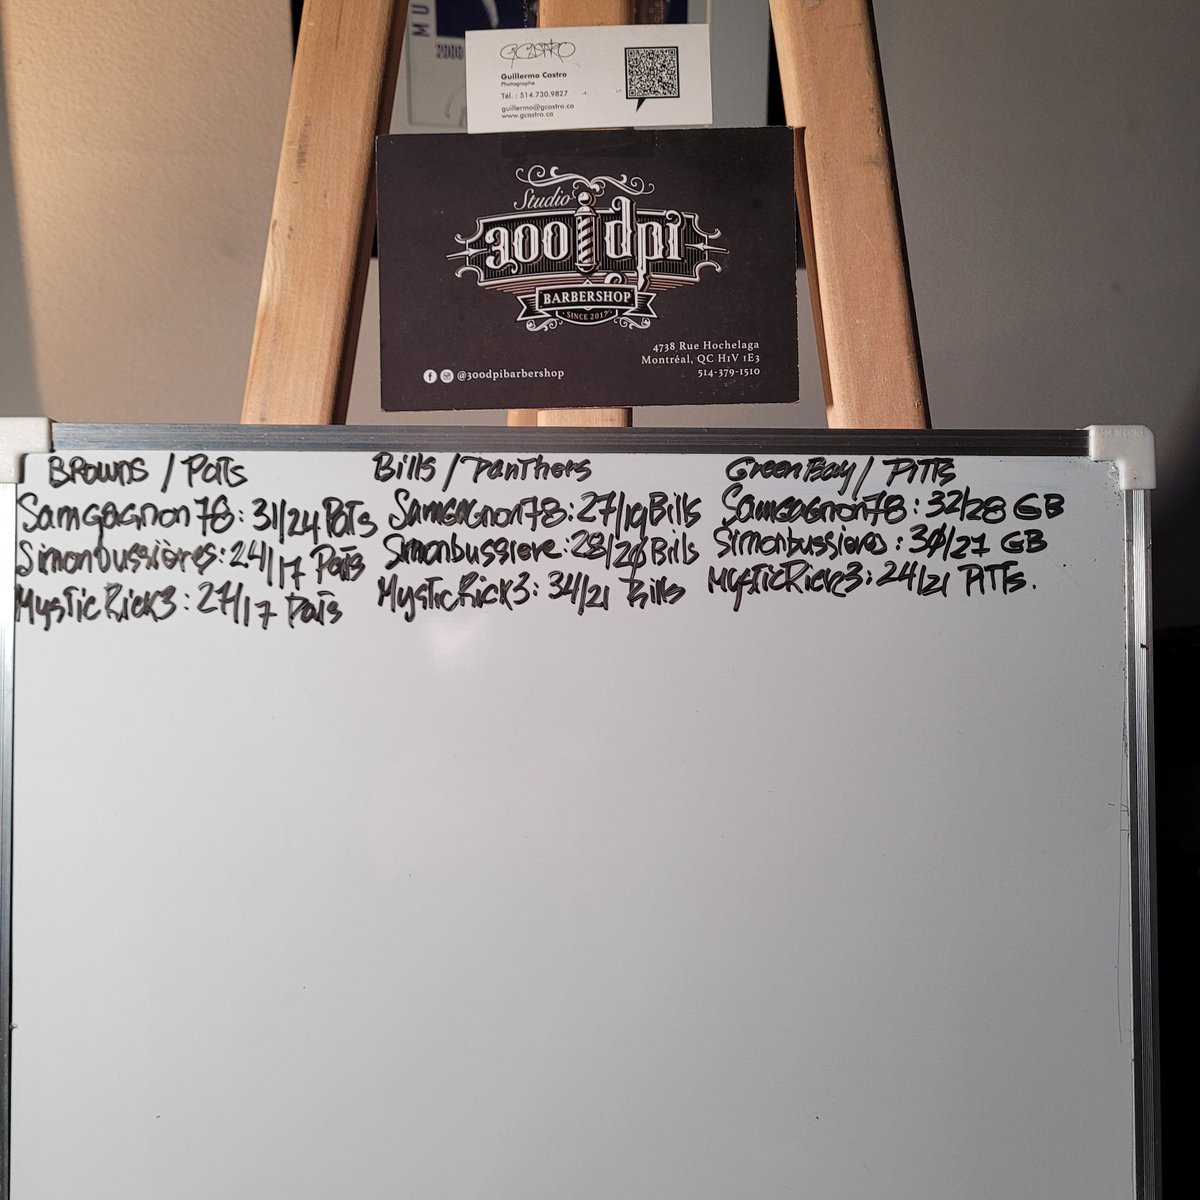 MU
2000
GCASTRO
Guillermo Castro
Photographe
Tél. : 514.730.9827
guillermo@gcastro.ca
www.gcastro.ca
Studio
300 dpi
BARBERSHOP
SINCE 2017
4738 Rue Hochelaga
Montréal, QC H1V 1E3
514-379-1510
@300dpibarbershop
Browns / Pats
Samgagnon78: 31/24 Pats
Simonbussières: 24/17 Pats
MysTicRick3: 27/17 Pats
Bills / Panthers
Samgagnon78: 27/19 Bills
Simonbussiere: 28/20 Bills
MysTicRick3: 34/21 Bills
Green Bay / PiTTs
Samgagnon78: 32/28 GB
Simonbussieres: 30/27 GB
MysTicRick3: 24/21 PiTTs.